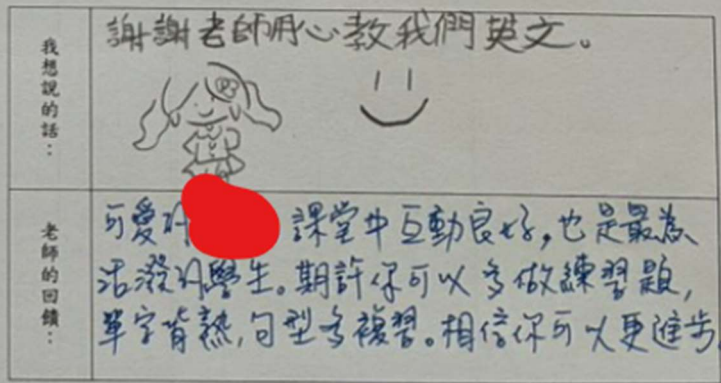 我想說的話：
謝謝老師用心教我們英文。
老師的回饋：
可愛的 課堂中互動良好，也是最為
活潑的學生。期許你可以多做練習題，
單字背熟，句型多複習。相信你可以更進步。